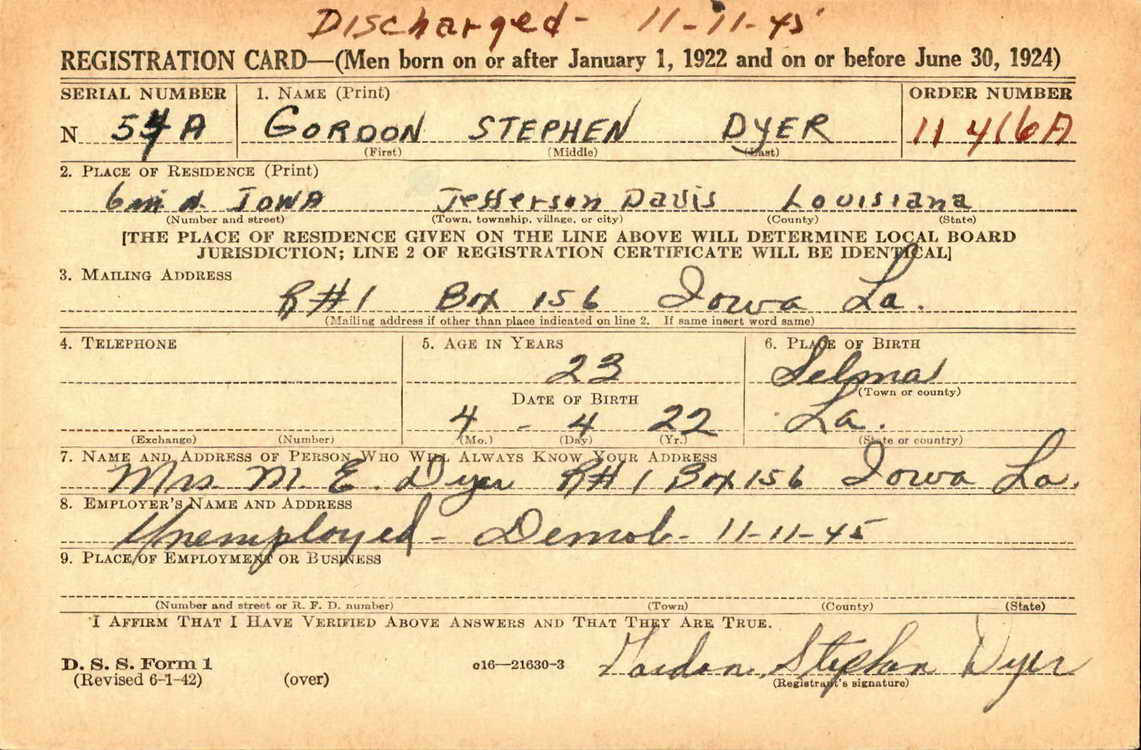 Discharged - 11-11-45
REGISTRATION CARD—(Men born on or after January 1, 1922 and on or before June 30, 1924)
SERIAL NUMBER 1. NAME (Print) ORDER NUMBER
N 54A GORDON STEPHEN DYER 11416A
(First) (Middle) (Last)
2. PLACE OF RESIDENCE (Print)
6 mi N. IOWA Jefferson Davis Louisiana
(Number and street) (Town, township, village, or city) (County) (State)
[THE PLACE OF RESIDENCE GIVEN ON THE LINE ABOVE WILL DETERMINE LOCAL BOARD
JURISDICTION; LINE 2 OF REGISTRATION CERTIFICATE WILL BE IDENTICAL]
3. MAILING ADDRESS
R#1 Box 156 Iowa La.
(Mailing address if other than place indicated on line 2. If same insert word same)
4. TELEPHONE 5. AGE IN YEARS 6. PLACE OF BIRTH
23 Selma
DATE OF BIRTH (Town or county)
4 - 4 22 La.
(Exchange) (Number) (Mo.) (Day) (Yr.) (State or country)
7. NAME AND ADDRESS OF PERSON WHO WILL ALWAYS KNOW YOUR ADDRESS
Mrs M. E. Dyer R#1 Box 156 Iowa La.
8. EMPLOYER'S NAME AND ADDRESS
Unemployed - Demob- 11-11-45
9. PLACE OF EMPLOYMENT OR BUSINESS
(Number and street or R. F. D. number) (Town) (County) (State)
I AFFIRM THAT I HAVE VERIFIED ABOVE ANSWERS AND THAT THEY ARE TRUE.
D. S. S. Form 1 c16—21630-3 Gordon Stephen Dyer
(Revised 6-1-42) (over) (Registrant's signature)